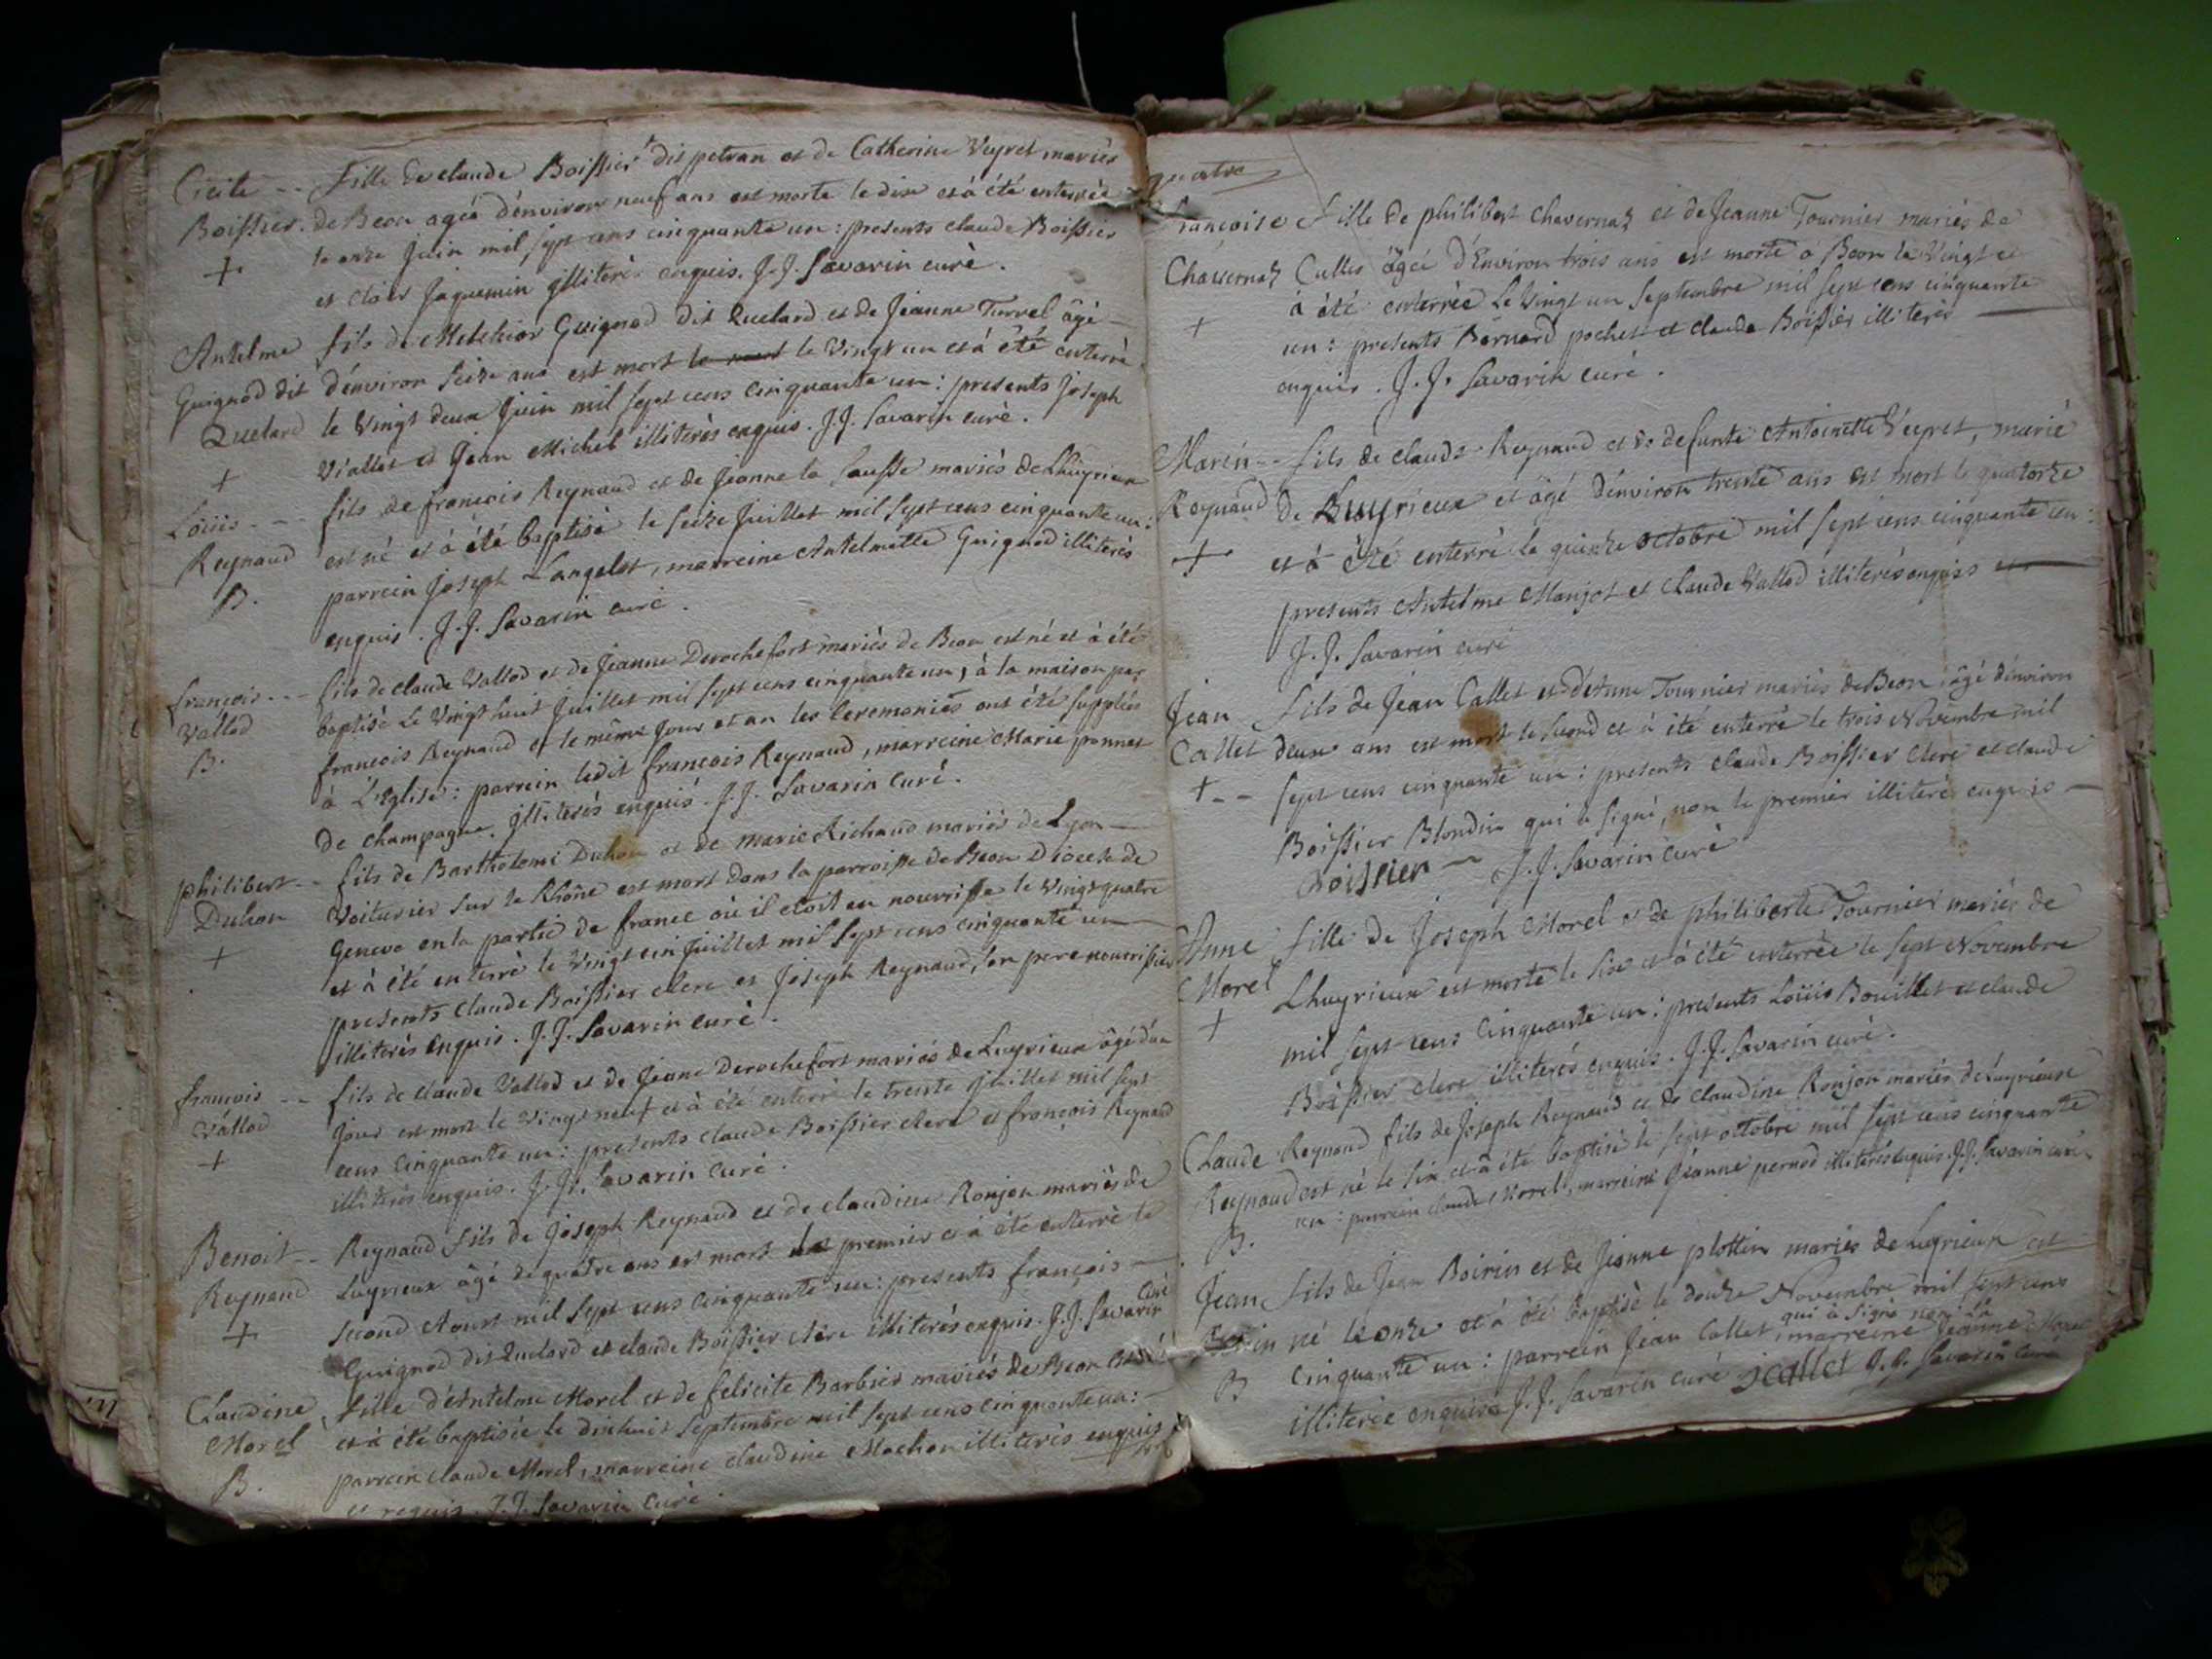 Cicile -- fille de claude Boissier dit petran et de Catherine Veyret mariés
Boissier. de Beon agée d'énviron neuf ans est morte le dix et à été enterrée
+ le onze Juin mil sept cens cinquante un : presents claude Boissier
et Jaquemin illiterés enquis. J.J. Savarin curé.
Antelme fils de Melchior Guignod dit Quelard et de Jeanne Turrel âgé
Guignod dit d'énviron seize ans est mort le vingt un et à été enterré
Quelard le vingt deux Juin mil sept cens cinquante un : presents Joseph
+ Viallet et Jean Michel illiterés enquis. J.J. Savarin curé.
Loüis -- fils de francois Reynaud et de Jeanne la sausse mariés de Lhuyrieux
Reynaud est né et à été baptisé le seize Juillet mil sept cens cinquante un :
B. parrein Joseph Langelot, marreine Antelmette Guignod illiterés
enquis. J.J. Savarin curé.
françois -- fils de claude Vallod et de Jeanne Derochefort mariés de Beon est né et à été
Vallod baptisé le vingt huit Juillet mil sept cens cinquante un, à la maison par
B. francois Reynaud et le même jour et an les ceremonies ont été supplées
à L'Eglise : parrein ledit francois Reynaud, marreine Marie ponnet
de champagne. illiterés enquis. J.J. Savarin curé.
philibert -- fils de Bartholomé Duhon et de marie Richaud mariés de Lyon
Duhon Voiturier sur le Rhône est mort dans la parroisse de Beon Diocese de
+ Geneve en la partie de france où il etoit en nourrisse le vingt quatre
et à été enterré le vingt cin Juillet mil sept cens cinquante un
presents claude Boissier clerc et Joseph Reynaud, son pere nourrissier
illiterés enquis. J.J. Savarin curé.
francois -- fils de claude Vallod et de Jeane Derochefort mariés de Luyrieux âgé d'un
Vallod jour est mort le vingt neuf et à été enterré le trente juillet mil sept
+ cens cinquante un : presents claude Boissier clerc et françois Reynaud
illiterés enquis. J.J. Savarin curé.
Benoit -- Reynaud fils de Joseph Reynaud et de claudine Ronjon mariés de
Reynaud Luyrieux âgé de quatre ans est mort le premier et à été enterré le
+ second Aoust mil sept cens cinquante un : presents françois
Guignod dit Quelard et claude Boissier clerc illiterés enquis. J.J. Savarin curé
Claudine fille d'Antelme Morel et de felicite Barbier mariés de Beon
Morel et à été baptisée le dixhuit Septembre mil sept cens cinquante un :
B. parrein claude Morel, marreine claudine Mochon illiterés enquis
et requis. J.J. Savarin curé.
quatre
françoise fille de philibert chavernaz et de Jeanne Tournier mariés de
Chavernaz Cules âgée d'Environ trois ans est morte à Beon le vingt et
+ à été enterrée le vingt un Septembre mil sept cens cinquante
un : presents Bernard pochet et claude Boissier illiterés
enquis. J.J. Savarin curé.
Marin -- fils de claude Reynaud et de defunte Antoinette Veyret, marié
Reynaud de Luyrieux et âgé d'énviron trente ans est mort le quatorze
+ et à été enterré le quinze octobre mil sept cens cinquante un :
presents Antelme Manjot et Claude Vallod illiterés enquis
J.J. Savarin curé
Jean fils de Jean Callet et d'étienne Tournier mariés de Beon âgé d'énviron
Callet deux ans est mort le second et à été enterré le trois Novembre mil
+ -- sept cens cinquante un : presents claude Boissier clerc et claude
Boissier Blondin qui à signé, non le premier illiteré enquis
Boissier J.J. Savarin curé
Anne fille de Joseph Morel et de philiberte Tournier mariés de
Morel Lhuyrieux est morte le six et à été enterrée le sept Novembre
+ mil sept cens cinquante un : presents Loüis Bouillet et claude
Boissier clerc illiterés enquis. J.J. Savarin curé.
Claude Reynaud fils de Joseph Reynaud et de claudine Ronjon mariés de Luyrieux
Reynaud est né le six et à été baptisé le sept octobre mil sept cens cinquante
un : parrein claude Morel, marreine Jeanne pernod illiterés enquis. J.J. Savarin curé
B.
Jean fils de Jean Boirin et de Jeanne plottin mariés de Luyrieux est
Boirin né le onze et à été baptisé le douze Novembre mil sept cens
B cinquante un : parrein Jean Callet qui à signé non la marreine Jeanne Morel
illiterée enquise J.J. Savarin curé J callet J.J. Savarin curé